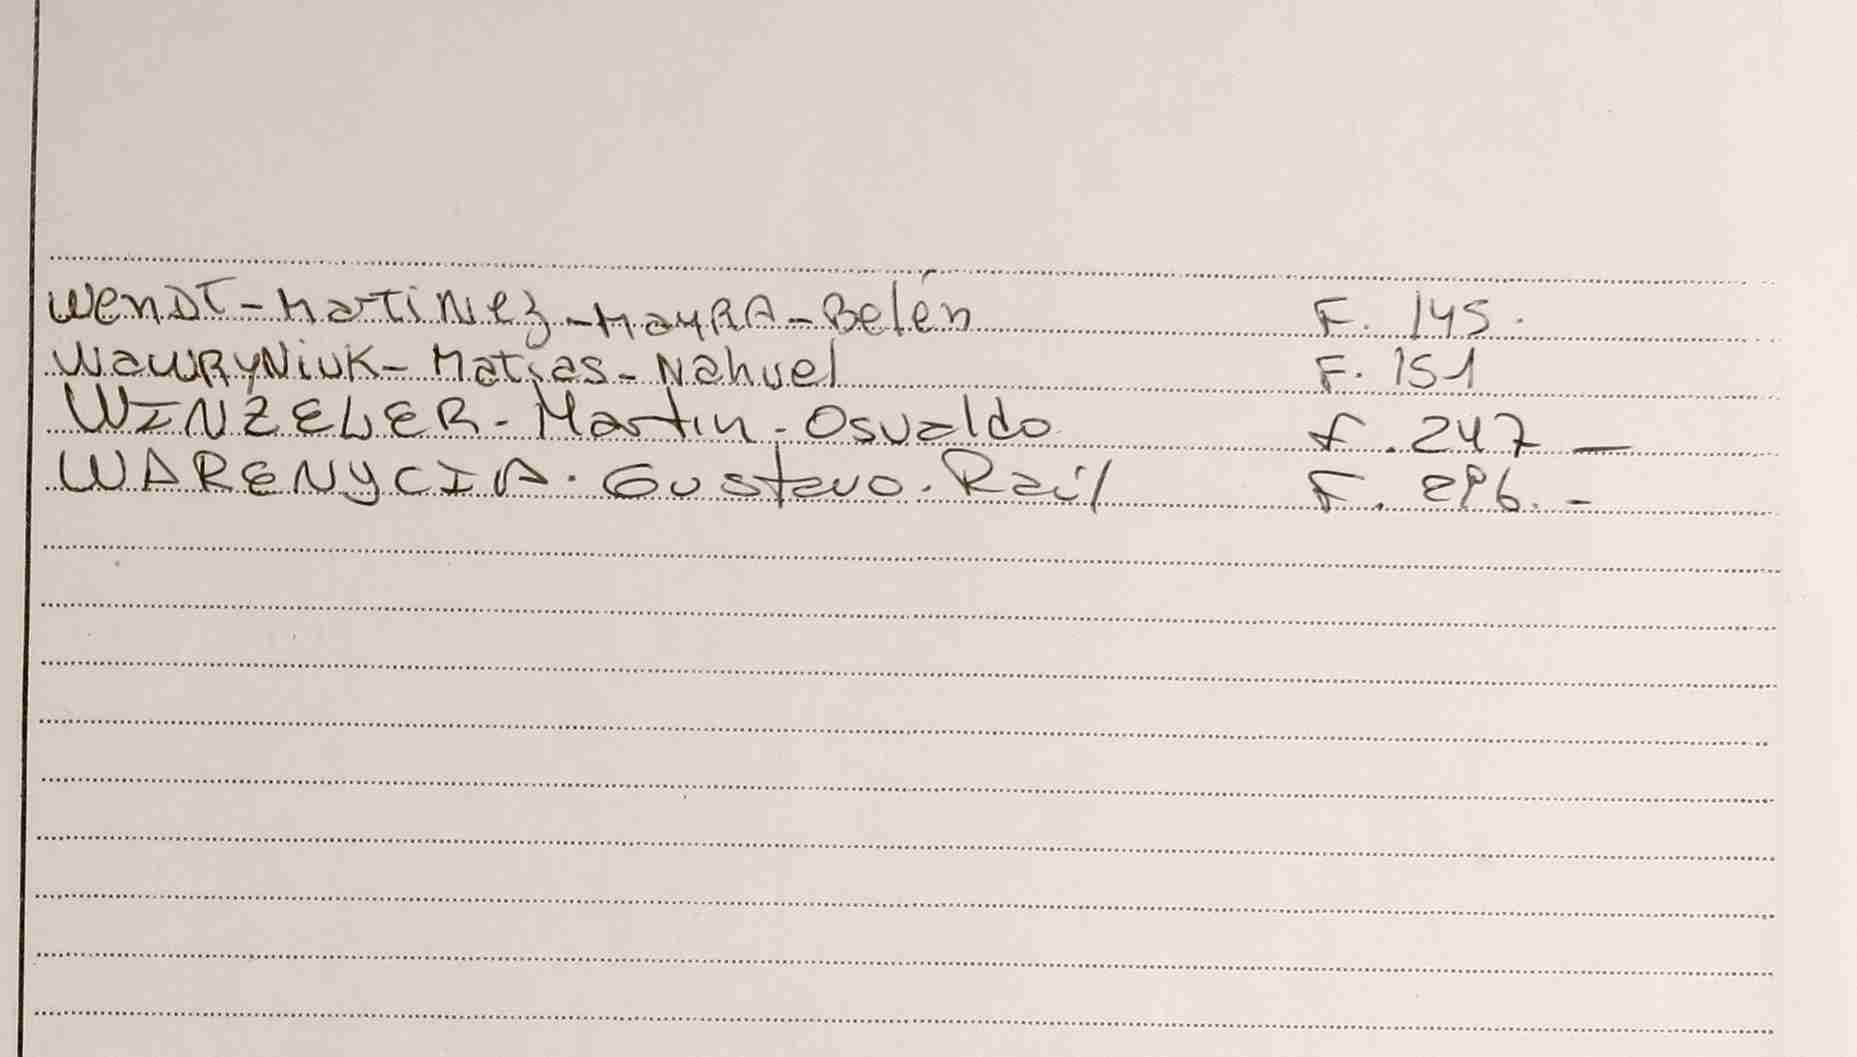 WenDT-Martinez-MayRA-Belén F. 145.
WawRyNiuk-Matias-Nahuel F. 151
WINZELER-Martin-Osvaldo f. 247 —
WARENYCIA. Gustavo. Raúl F. 296. -